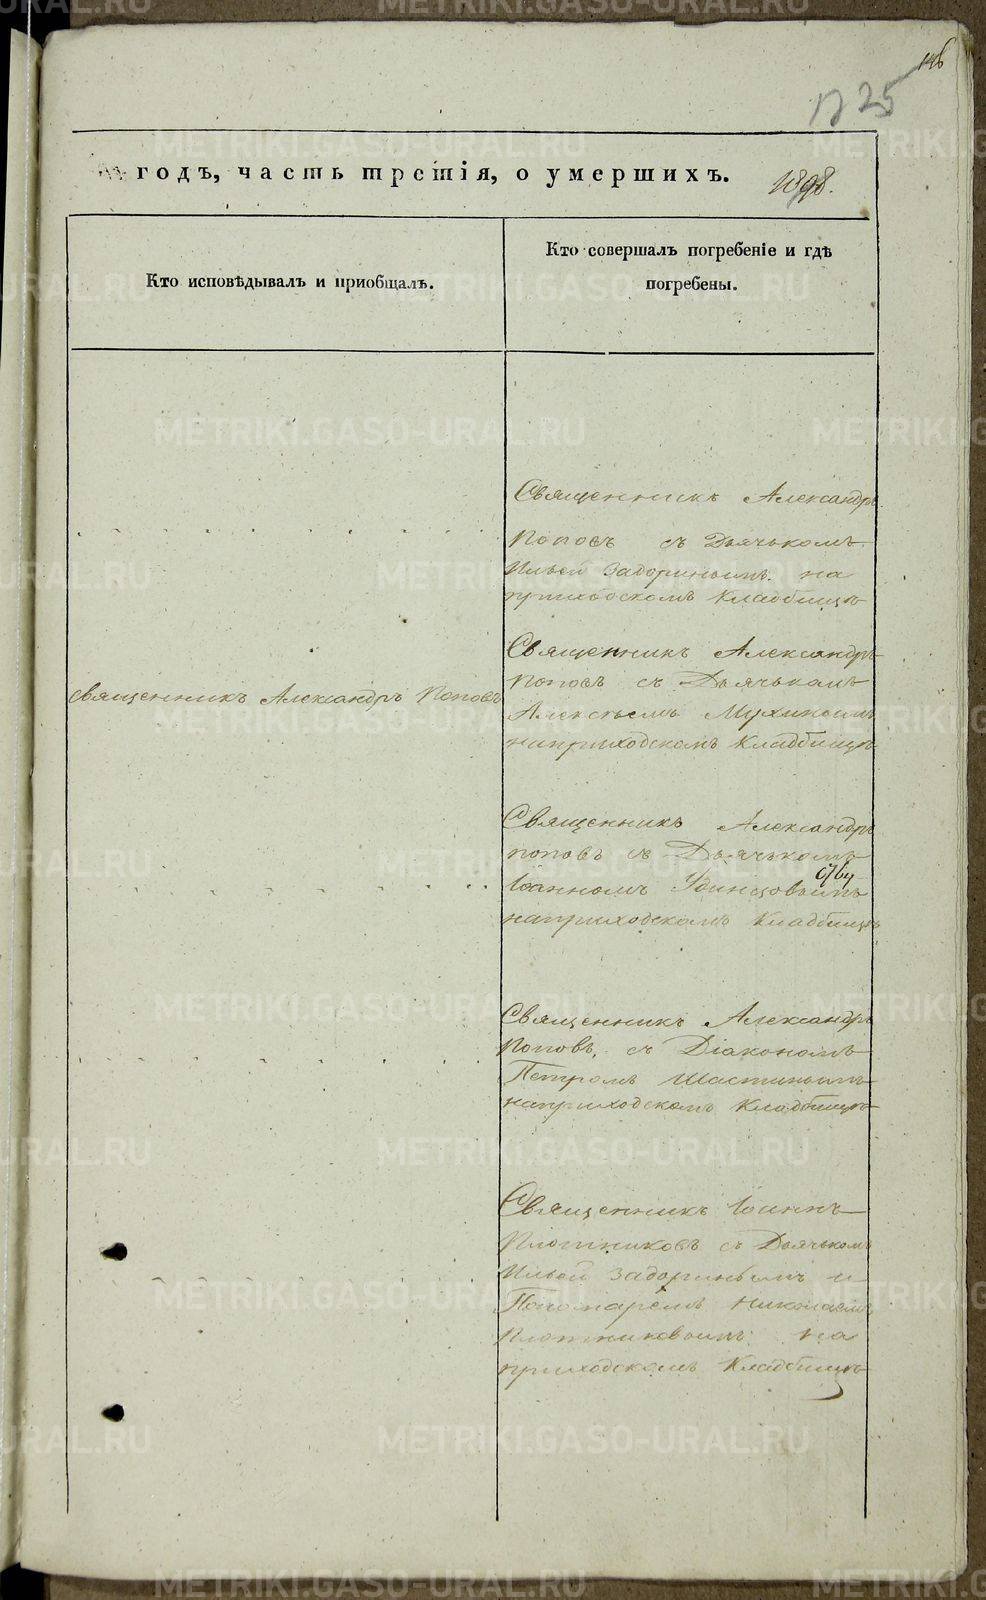 146
1725
годъ, часть третія, о умершихъ. 1898.
Кто исповѣдывалъ и приобщалъ.
Кто совершалъ погребеніе и гдѣ
погребены.
Священникъ Александръ
Поповъ съ Дьячькомъ
Ильей Задоринымъ на
приходскомъ Кладбищѣ
Священникъ Александръ Поповъ
Священникъ Александръ
Поповъ съ Дьячькомъ
Алексѣемъ Мухинымъ
наприходскомъ Кладбищѣ
Священникъ Александръ
Поповъ съ Дьячькомъ
Іоанномъ Удинцовымъ
наприходскомъ Кладбищѣ
Священникъ Александръ
Поповъ, съ Діакономъ
Петромъ Шастинымъ
наприходскомъ Кладбищѣ
Священникъ Іоаннъ
Плотниковъ съ Дьячькомъ
Ильей Задоринымъ и
Пономаремъ Николаемъ
Плотниковымъ на
приходскомъ Кладбищѣ
METRIKI.GASO-URAL.RU